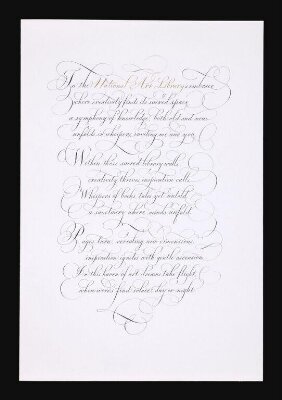 In the National Art Library's embrace,
where creativity finds its sacred space,
a symphony of knowledge, both old and new
unfolds in whispers, inviting me and you.
Within these sacred library walls,
creativity thrives, inspiration calls.
Whispers of books, tales yet untold
a sanctuary where minds unfold.
Pages turn, revealing new dimensions,
inspiration ignites with gentle ascension.
In this haven of art, dreams take flight,
where words find solace day or night.